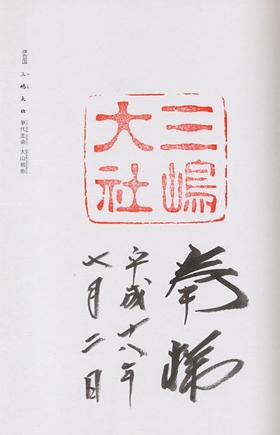 奉拝
三嶋
大社
平成十八年
七月二日
伊豆国 三嶋大社 事代主命・大山祇命